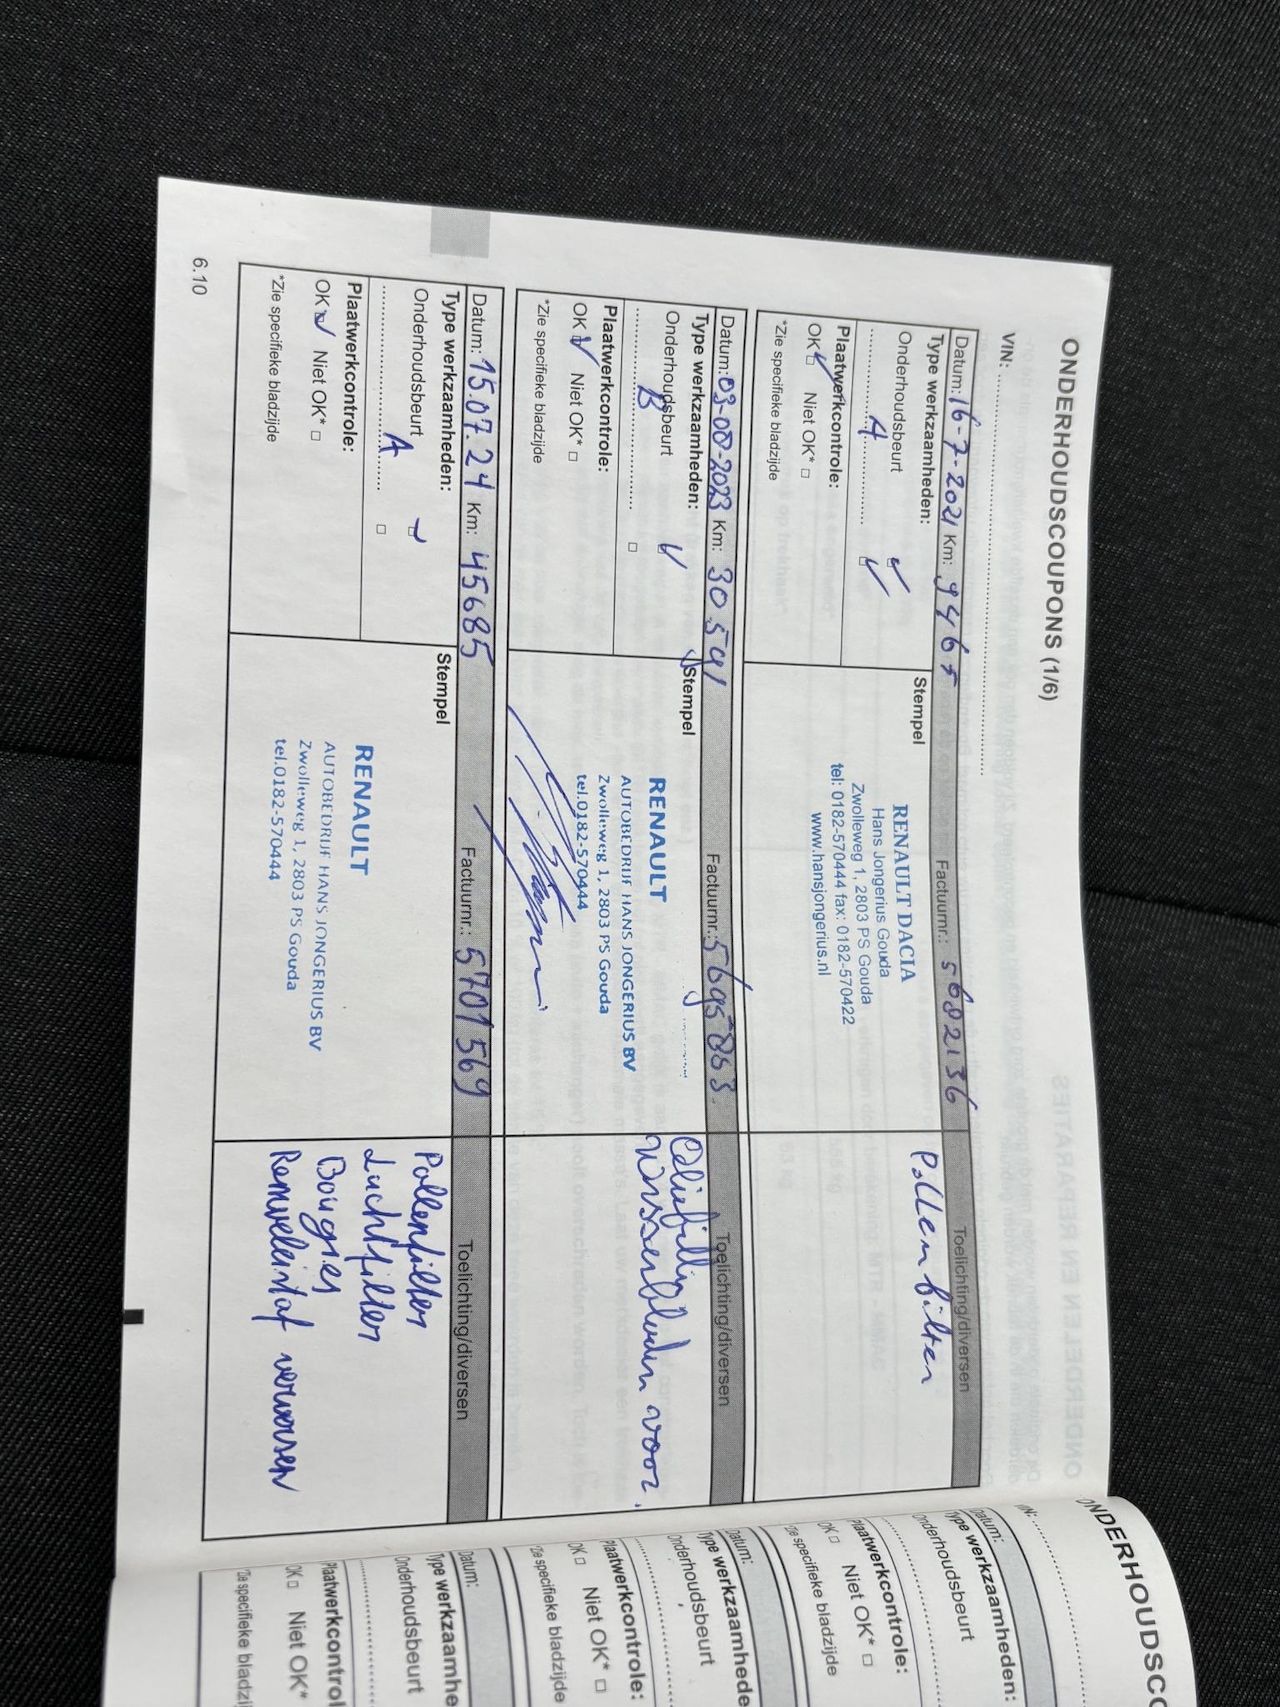 ONDERHOUDSCOUPONS (1/6)
VIN:
Datum: 16-7-2021 Km: 9465 Factuurnr.: 5682136 Toelichting/diversen
Type werkzaamheden:
Onderhoudsbeurt
A
Plaatwerkcontrole:
OK Niet OK*
*Zie specifieke bladzijde
Stempel
RENAULT DACIA
Hans Jongerius Gouda
Zwolleweg 1, 2803 PS Gouda
tel: 0182-570444 fax: 0182-570422
www.hansjongerius.nl
Pollenfilter
Datum: 03-08-2023 Km: 30541 Factuurnr.: 5695863. Toelichting/diversen
Type werkzaamheden:
Onderhoudsbeurt
B
Plaatwerkcontrole:
OK Niet OK*
*Zie specifieke bladzijde
Stempel
RENAULT
AUTOBEDRIJF HANS JONGERIUS BV
Zwolleweg 1, 2803 PS Gouda
tel.0182-570444
Wisserbladen voor.
Datum: 15.07.24 Km: 45685 Factuurnr.: 5701569 Toelichting/diversen
Type werkzaamheden:
Onderhoudsbeurt
A
Plaatwerkcontrole:
OK Niet OK*
*Zie specifieke bladzijde
Stempel
RENAULT
AUTOBEDRIJF HANS JONGERIUS BV
Zwolleweg 1, 2803 PS Gouda
tel.0182-570444
Pollenfilter
Luchtfilter
Bougies
Remvloeistof verversen
6.10
ONDERHOUDSC
Datum:
Type werkzaamheden:
Onderhoudsbeurt
Plaatwerkcontrole:
OK Niet OK*
*Zie specifieke bladzijde
Datum:
Type werkzaamhede
Onderhoudsbeurt
Plaatwerkcontrole:
OK Niet OK*
*Zie specifieke bladzijde
Datum:
Type werkzaamhe
Onderhoudsbeurt
Plaatwerkcontrol
OK Niet OK*
*Zie specifieke bladzij